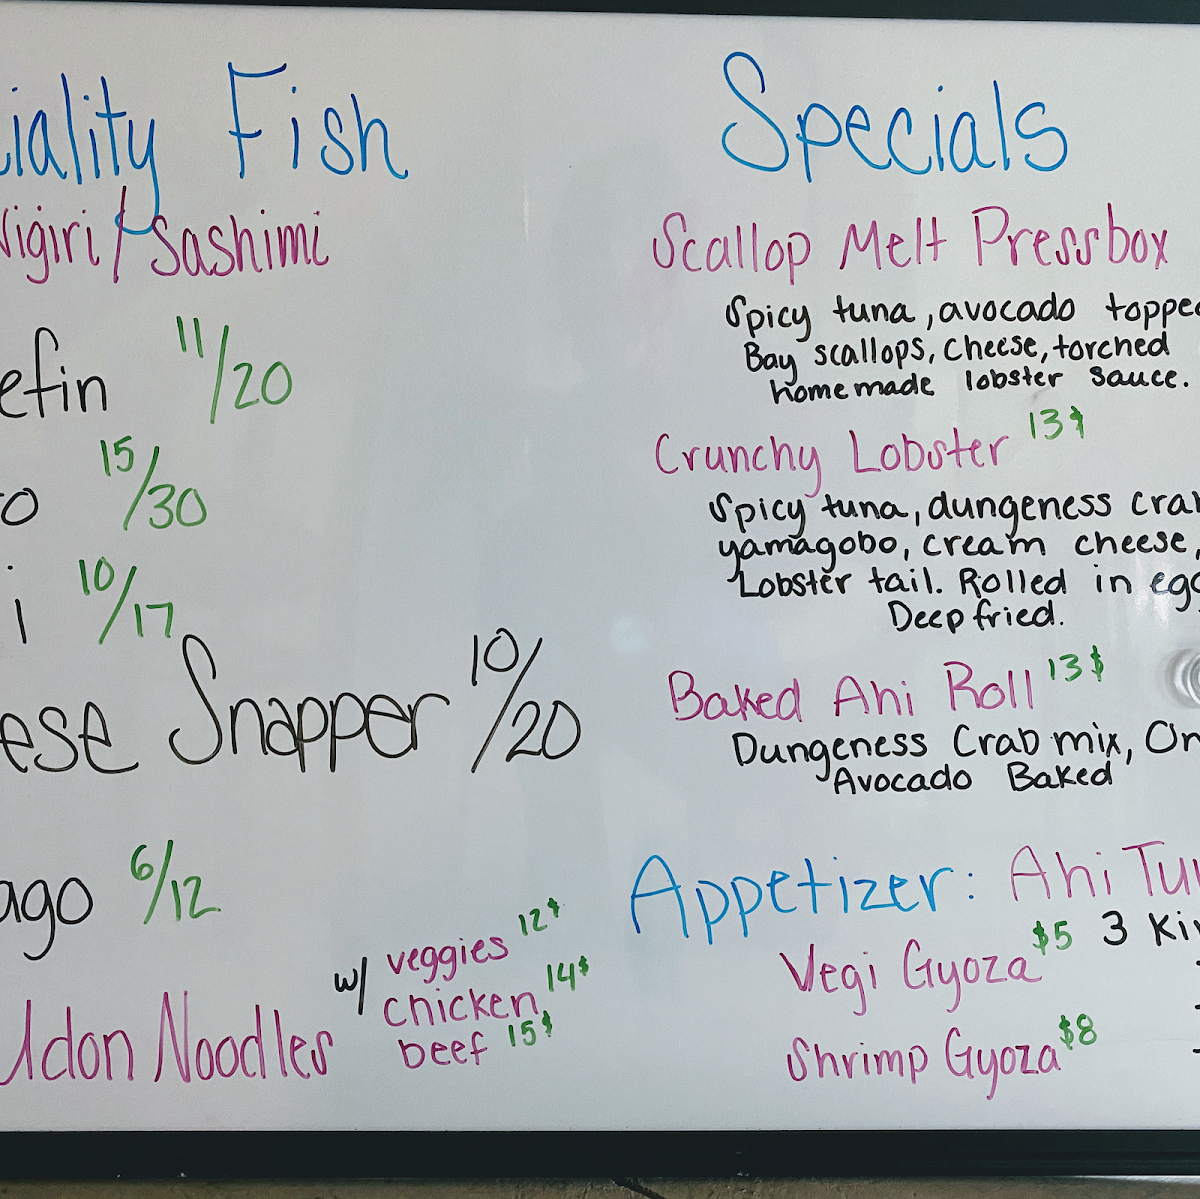 Fish
Sashimi
11/20
15/30
10/17
Snapper 10/20
6/12
Udon Noodles w/ veggies 12$
chicken 14$
beef 15$
Specials
Scallop Melt Pressbox
Spicy tuna, avocado topped
Bay scallops, cheese, torched
homemade lobster sauce.
Crunchy Lobster 13$
Spicy tuna, dungeness
yamagobo, cream cheese,
Lobster tail. Rolled in
Deep fried.
Baked Ahi Roll 13$
Dungeness Crab mix,
Avocado Baked
Appetizer: Ahi
Vegi Gyoza $5 3
Shrimp Gyoza $8